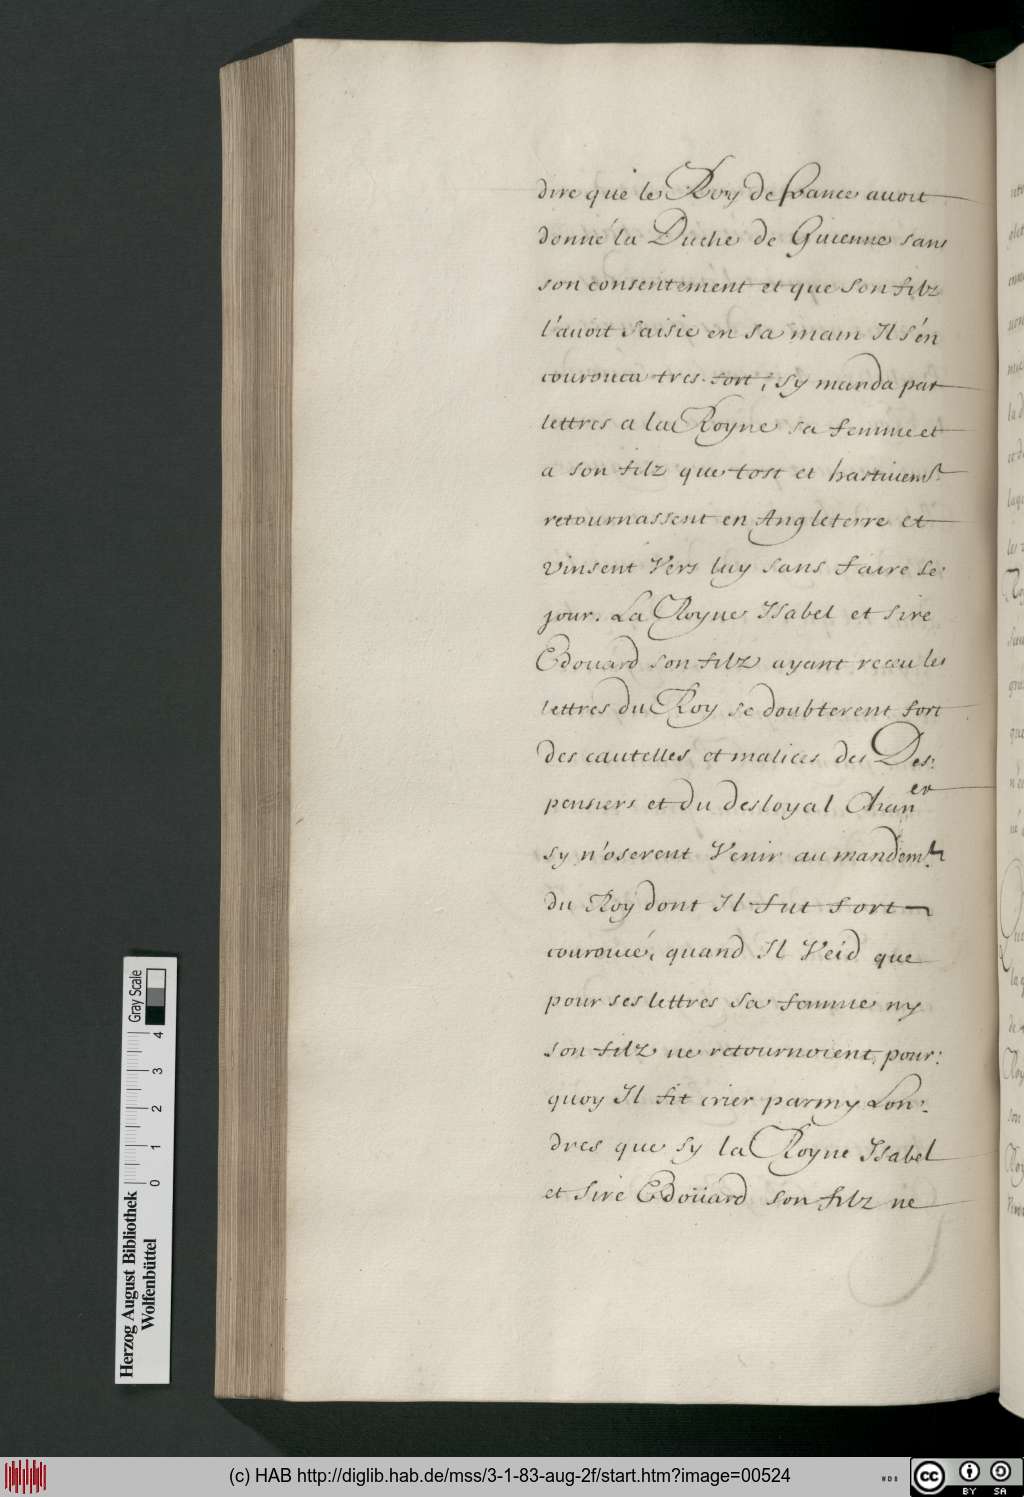 dire que le Roy de france auoit
donné la Duche de Guienne sans
son consentement et que son filz
l'auoit saisie en sa main Il s'én
courouca tres fort, sy manda par
lettres a la Royne sa femme et
a son filz que tost et hastiuemt.
retournassent en Angleterre et
vinsent Vers luy sans faire se:
jour. La Royne Isabel et sire
Edouard son filz ayant receu les
lettres du Roy se doubterent fort
des cautelles et malices des Des:
pensiers et du desloyal Chaner
sy n'oserent Venir au mandemt.
du Roy dont Il fut fort
couroucé, quand Il Veid que
pour ses lettres sa femme ny
son filz ne retournoient, pour:
quoy Il fit crier parmy Lon:
dres que sy la Royne Isabel
et sire Edoüard son filz ne
Gray Scale
4
3
2
1
0
Herzog August Bibliothek
Wolfenbüttel
(c) HAB http://diglib.hab.de/mss/3-1-83-aug-2f/start.htm?image=00524
WDB
cc
BY SA